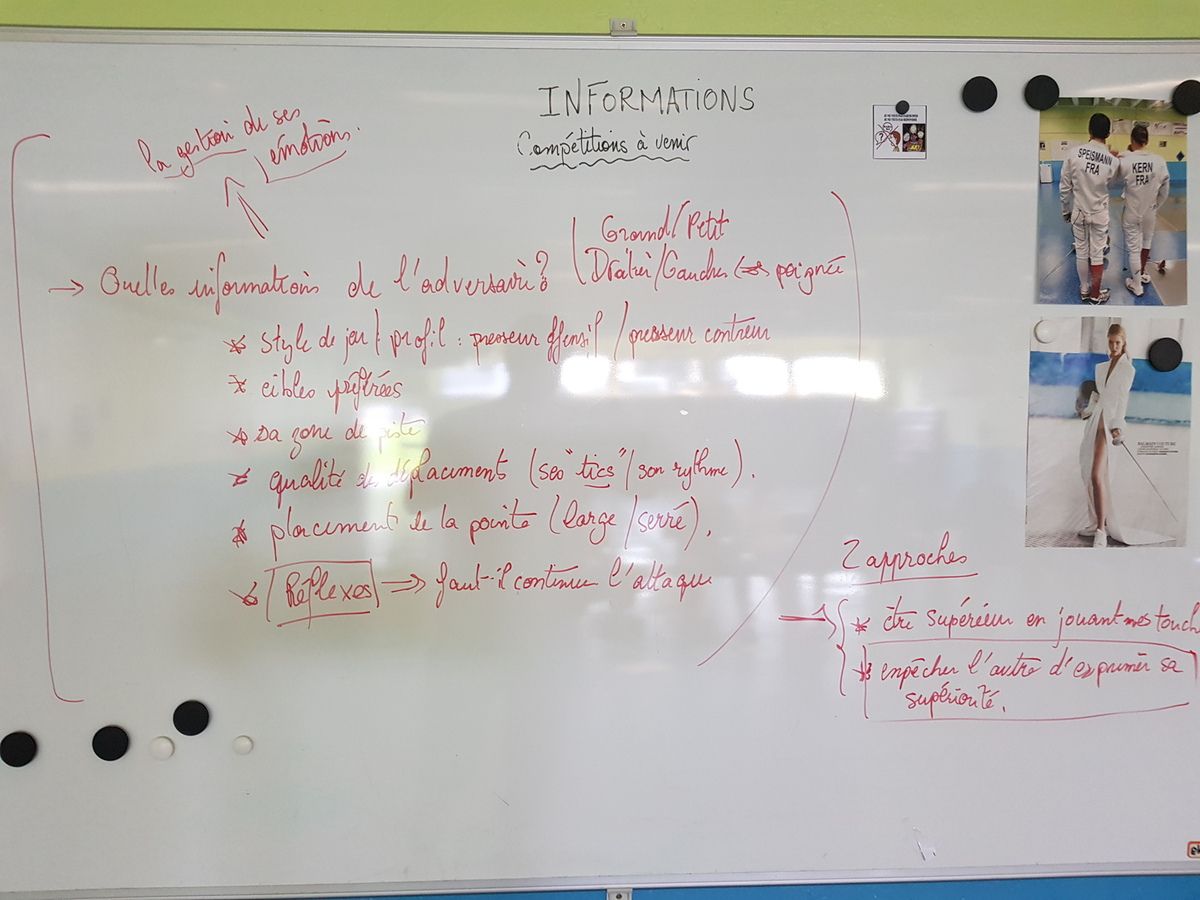 INFORMATIONS
Compétitions à venir
la gestion de ses
émotions.
Grand/Petit
→ Quelles informations de l'adversaire? Droitier/Gaucher ↔ poignée
* Style de jeu / profil : presseur offensif / presseur contreur
* cibles préférées
* sa zone de piste
* qualité de déplacement (ses "tics" / son rythme).
* placement de la pointe (large / serré).
* Réflexes ⇒ faut-il continuer l'attaque
2 approches
* être supérieur en jouant mes touch
* empêcher l'autre d'exprimer sa
supériorité.
SPEISMANN
FRA
KERN
FRA